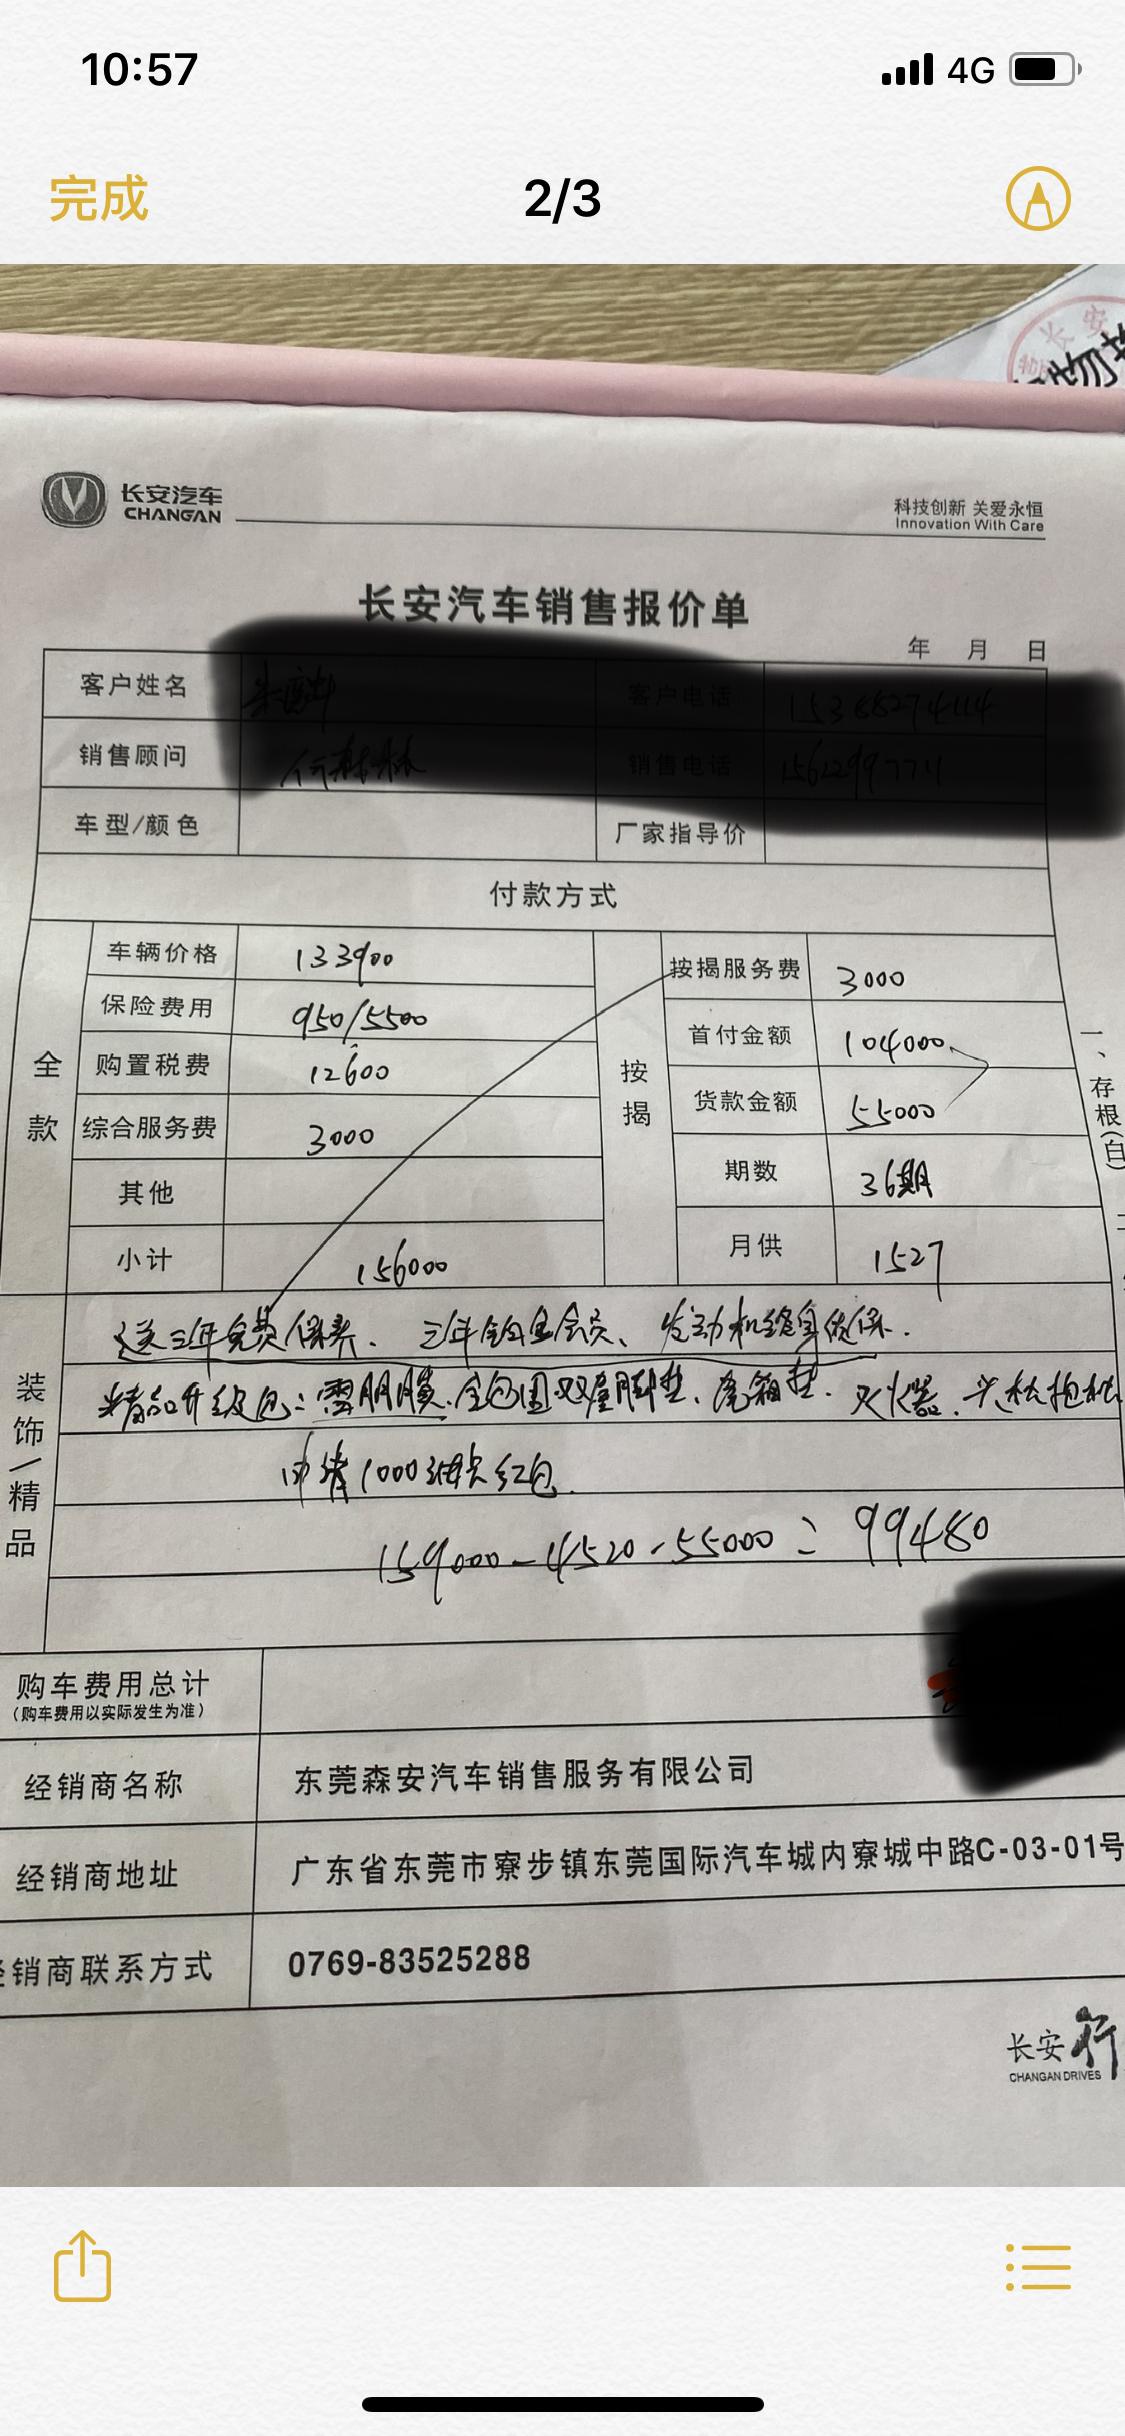 10:57
4G
完成
2/3
长安
物
长安汽车
CHANGAN
科技创新 关爱永恒
Innovation With Care
长安汽车销售报价单
年 月 日
客户姓名 客户电话
销售顾问 销售电话
车型/颜色 厂家指导价
付款方式
全款
车辆价格 133900
保险费用 950/5500
购置税费 12600
综合服务费 3000
其他
小计 156000
按揭
按揭服务费 3000
首付金额 104000
货款金额 55000
期数 36期
月供 1527
一、存根(白)
装饰/精品
送三年免费保养、三年铂金会员、发动机终身质保.
精品升级包:雷朋膜.全包围双层脚垫、尾箱垫.灭火器.头枕抱枕
申请1000油卡红包.
159000-4520-55000= 99480
购车费用总计
(购车费用以实际发生为准)
经销商名称 东莞森安汽车销售服务有限公司
经销商地址 广东省东莞市寮步镇东莞国际汽车城内寮城中路C-03-01号
经销商联系方式 0769-83525288
长安行
CHANGAN DRIVES